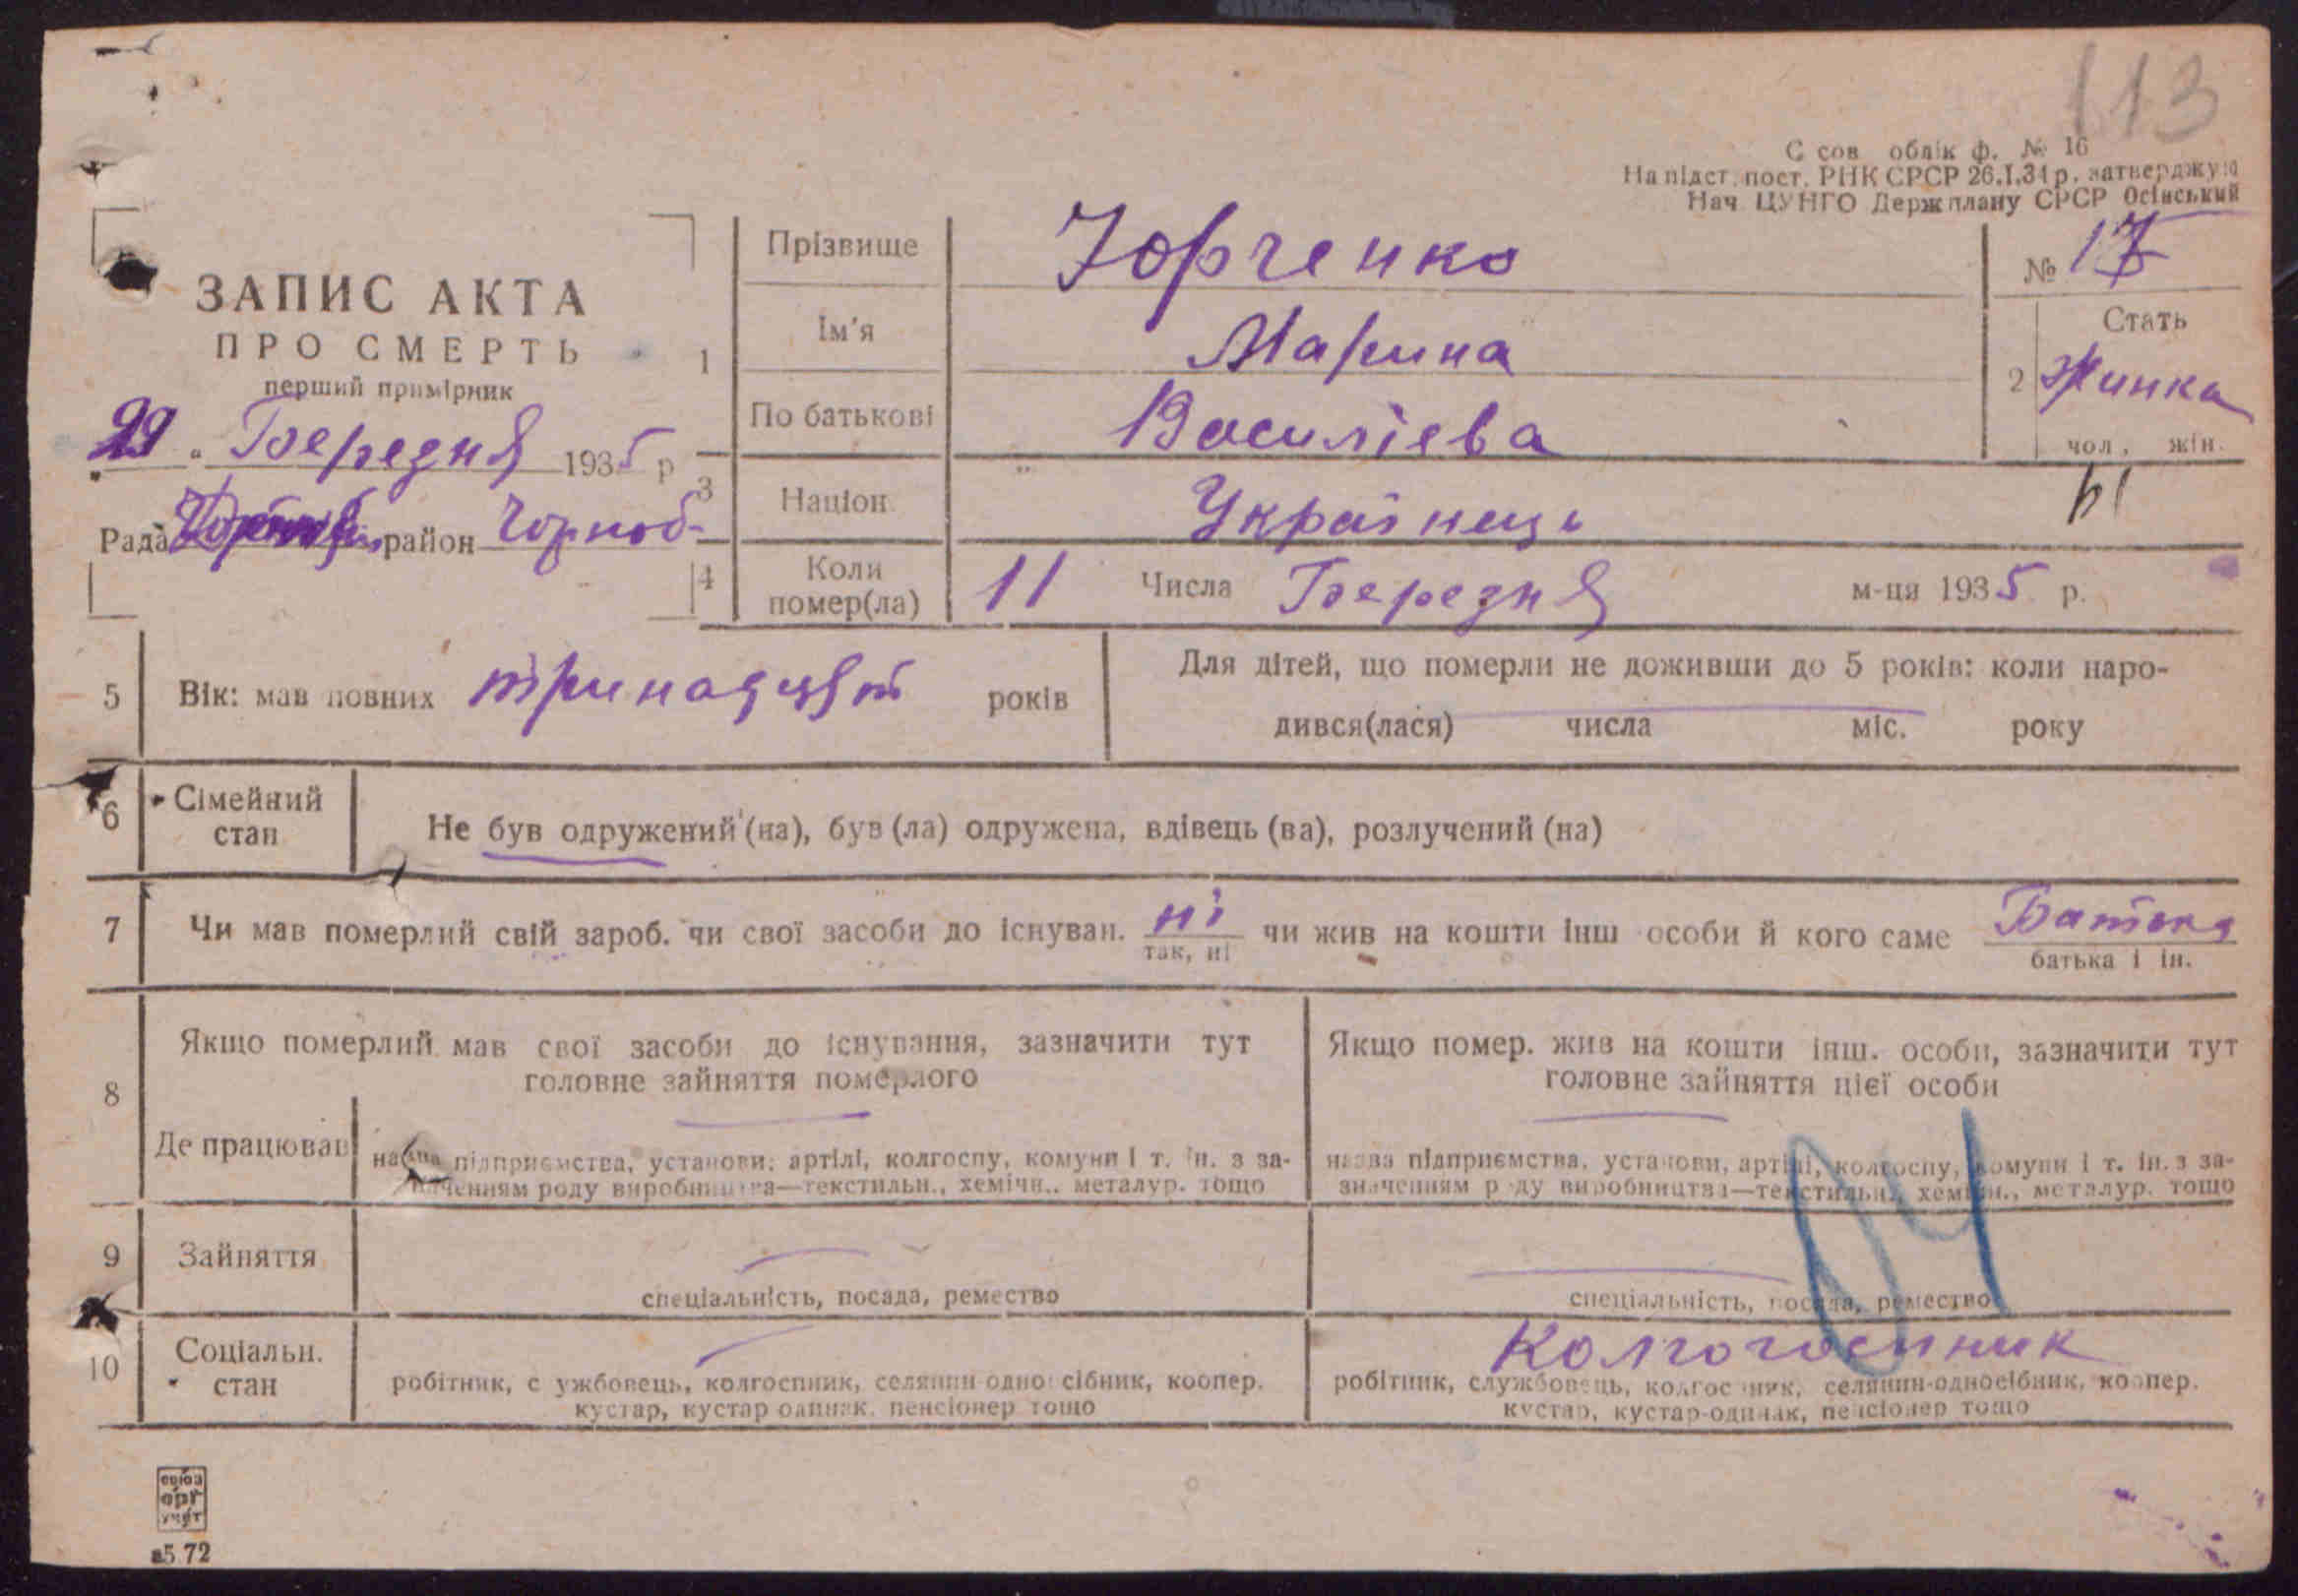 113
С сов облік ф. № 16
На підст. пост. РНК СРСР 26.I.31 р. затверджую
Нач. ЦУНГО Держплану СРСР Осінський
ЗАПИС АКТА
ПРО СМЕРТЬ
перший примірник
"29" Березня 1935 р
Рада район Чорноб-
1
Прізвище Юрченко
№ 17
Ім'я Марина
По батькові Василіева
2 Стать
Жинка
чол. жін.
3 Націон. Українець
4 Коли помер(ла) 11 Числа Березня м-ця 1935 р.
5 Вік: мав повних тринадцят років
Для дітей, що померли не доживши до 5 років: коли наро-
дився(лася) числа міс. року
6 Сімейний стан Не був одружений (на), був (ла) одружена, вдівець (ва), розлучений (на)
7 Чи мав померлий свій зароб. чи свої засоби до існуван. ні чи жив на кошти інш особи й кого саме Батька
так, ні батька і ін.
8 Якщо померлий мав свої засоби до існування, зазначити тут
головне зайняття померлого
Якщо помер. жив на кошти інш. особи, зазначити тут
головне зайняття цієї особи
Де працював
назва підприємства, установи: артілі, колгоспу, комуни і т. ін. з за-
наченням роду виробництва—текстильн., хемічн., металур. тощо
назва підприємства, установи, артілі, колгоспу, комуни і т. ін. з за-
значенням роду виробництва—текстильн., хемічн., металур. тощо
9 Зайняття
спеціальність, посада, ремество
спеціальність, посада, ремество
10 Соціальн. стан
Колгогоспник
робітник, службовець, колгоспник, селянин-одноосібник, коопер.
кустар, кустар одинак, пенсіонер тощо
робітник, службовець, колгоспник, селянин-одноосібник, коопер.
кустар, кустар-одинак, пенсіонер тощо
союз
орг
учёт
а5.72